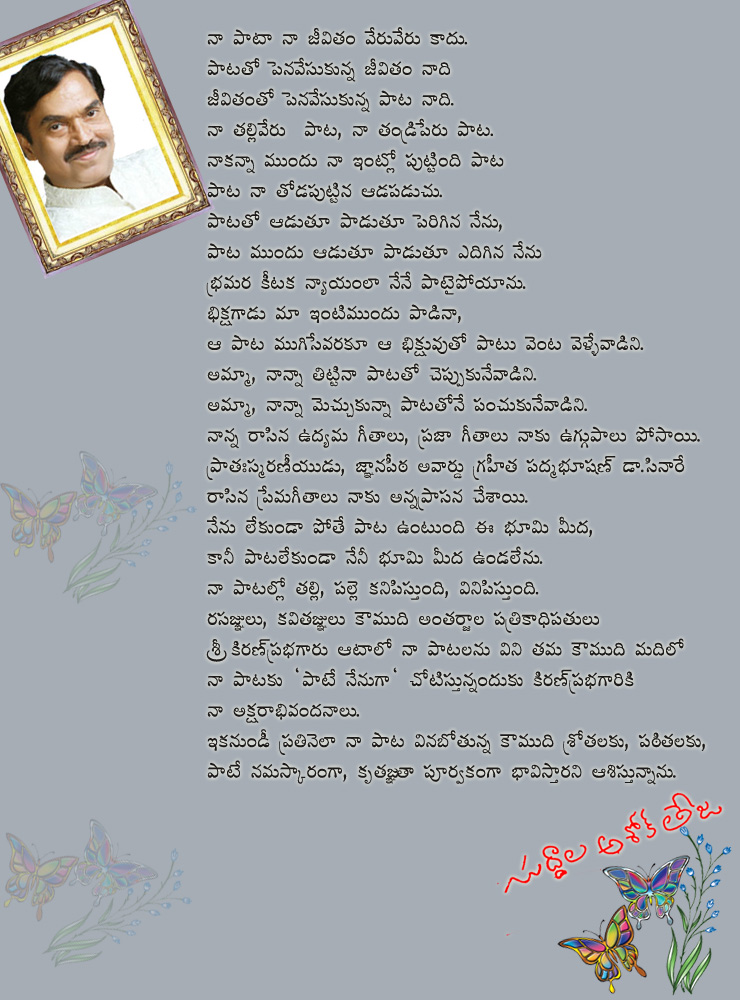 నా పాటా నా జీవితం వేరువేరు కాదు.
పాటతో పెనవేసుకున్న జీవితం నాది
జీవితంతో పెనవేసుకున్న పాట నాది.
నా తల్లివేరు పాట, నా తండ్రిపేరు పాట.
నాకన్నా ముందు నా ఇంట్లో పుట్టింది పాట
పాట నా తోడపుట్టిన ఆడపడుచు.
పాటతో ఆడుతూ పాడుతూ పెరిగిన నేను,
పాట ముందు ఆడుతూ పాడుతూ ఎదిగిన నేను
భ్రమర కీటక న్యాయంలా నేనే పాటైపోయాను.
భిక్షగాడు మా ఇంటిముందు పాడినా,
ఆ పాట ముగిసేవరకూ ఆ భిక్షువుతో పాటు వెంట వెళ్ళేవాడిని.
అమ్మా, నాన్నా తిట్టినా పాటతో చెప్పుకునేవాడిని.
అమ్మా, నాన్నా మెచ్చుకున్నా పాటతోనే పంచుకునేవాడిని.
నాన్న రాసిన ఉద్యమ గీతాలు, ప్రజా గీతాలు నాకు ఉగ్గుపాలు పోసాయి.
ప్రాతఃస్మరణీయుడు, జ్ఞానపీఠ అవార్డు గ్రహీత పద్మభూషణ్ డా.సినారే
రాసిన ప్రేమగీతాలు నాకు అన్నప్రాసన చేశాయి.
నేను లేకుండా పోతే పాట ఉంటుంది ఈ భూమి మీద,
కానీ పాటలేకుండా నేనీ భూమి మీద ఉండలేను.
నా పాటల్లో తల్లి, పల్లె కనిపిస్తుంది, వినిపిస్తుంది.
రసజ్ఞులు, కవితజ్ఞులు కౌముది అంతర్జాల పత్రికాధిపతులు
శ్రీ కిరణ్‌ప్రభగారు ఆటాలో నా పాటలను విని తమ కౌముది మదిలో
నా పాటకు ‘పాటే నేనుగా‘ చోటిస్తున్నందుకు కిరణ్‌ప్రభగారికి
నా అక్షరాభివందనాలు.
ఇకనుండీ ప్రతినెలా నా పాట వినబోతున్న కౌముది శ్రోతలకు, పఠితలకు,
పాటే నమస్కారంగా, కృతజ్ఞతా పూర్వకంగా భావిస్తారని ఆశిస్తున్నాను.
సుద్దాల అశోక్ తేజ